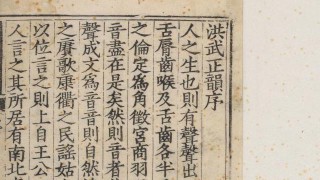 洪武正韻序
人之生也則有聲聲出
舌脣齒喉及舌齒各半
之倫定為角徵宮商羽
音盡在是矣然則音者
聲成文為音音則自然
之賡歌康衢之民謠姑
以位言之則上自王公
人言之其所居有南北